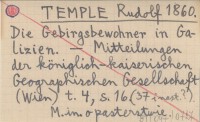 TEMPLE Rudolf 1860.
Die Gebirgsbewohner in Ga-
lizien. — Mitteilungen
der königlich-kaiserischen
Geographischen Gesellschaft
(Wien) t. 4, s. 16 (37
M. in. o pasterstwie.